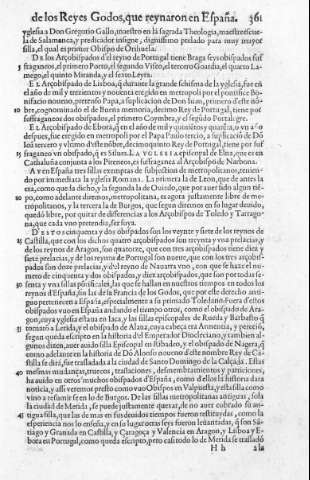 de los Reyes Godos, que reynaron en España. 361
yglesia a Don Gregorio Gallo, maestro en la sagrada Theologia, maestrescue-
la de Salamanca, predicador insigne, dignissimo perlado para muy mayor
silla, el qual es primer Obispo de Orihuela.
De los Arçobispados d'el reyno de Portugal tiene Braga seys obispados suf
fraganeos, el primero Porto, el segundo Viseo, el tercero Guardia, el quarto La-
mego, el quinto Miranda, y el sexto Leyra.
El Arçobispado de Lisboa, q̃ durante la grande schisma de la yglesia, fue en
el año de mil y trezientos y nouenta erigido en metropoli por el pontifice Bo-
nifacio noueno, pretenso Papa, a suplicacion de Don Iuan, primero d'este nõ-
bre, cognominado el de Buena memoria, decimo Rey de Portugal, tiene por
suffraganeos dos obispados, el primero Coymbra, y el segũdo Portalegre.
El Arçobispado de Ebora, q̃ en el año de mil y quinientos y quarẽta, o vn año
despues, fue erigido en metropoli por el Papa Paulo tercio, a suplicacion de Dõ
Iuã tercero y vltimo d'este nõbre, decimoquinto Rey de Portugal, tiene por suf
fraganeo vn obispado, q̃ es Silues. La yglesia episcopal de Elna, que es en
Cathaluña conjunta a los Pirineos, es suffraganea al Arçobispo de Narbona.
Ay en España tres sillas exemptas de subjection de metropolitanos, tenien-
do por immediata la yglesia Romana. La primera la de Leon, que de antes la
era, como queda dicho, y la segunda la de Ouiedo, que por auer sido algun tiẽ-
po, como adelante diremos, metropolitana, es agora justamente libre de me-
tropolitanos, y la tercera la de Burgos, que segun diremos en su lugar deuido,
quedó libre, por quitar de differencias a los Arçobispos de Toledo y Tarrago-
na, que cada vno pretendia, ser suya.
D'estos cinquenta y dos obispados son los veynte y siete de los reynos de
Castilla, que con los dichos quatro arçobispados son treynta y vna prelacias, y
de los reynos de Aragon, son quatorze, que con tres arçobispados tiene diez y
siete prelacias, y de los reynos de Portugal son nueue, que con los tres arçobis-
pados son doze prelacias, y d'el reyno de Nauarra vno, con que se haze el nu-
mero de cinquenta y dos obispados, y diez arçobispados, que son por todas se-
senta y vna sillas põtificales, las que se hallan en nuestros tiempos en todos los
reynos d'España, sin las de la Francia de los Godos, que por este derecho anti-
guo pertenecen a España, especialmente a su primado Toledano. Fuera d'estos
obispados vuo en España andando el tiempo otros, como el obispado de Ara-
gon, cuya yglesia estaua en Iaca, y las sillas episcopales de Rueda y Barbastro q̃
tornarõ a Lerida, y el obispado de Alaua, cuya cabeça era Armentia, y perecio,
segun queda escripto en la historia d'el Emperador Diocleciano, y tambien al-
gunos dizen, auer auido silla Episcopal en Bilbado, y el obispado de Nagera, q̃
como adelante en la historia de Dõ Alonso noueno d'este nombre Rey de Ca-
stilla se dirá, fue trasladada a la ciudad de Santo Domingo de la Calçada. Estas
mesmas mudanças, truecos, traslaciones, desmembramientos y particiones,
ha auido en otros muchos obispados d'España, como d'ellos la historia dara
noticia, y assi veremos presto como vuo Obispos en Valpuesta, y esta silla como
vino a resumirse en lo de Burgos. De las sillas metropolitanas antiguas, sola
la ciudad de Merida, se puede justamente quexar, de no auer cobrado su an-
tigua silla, que las de mas en sus deuidos tiempos fueron restituydas, como la
esperiencia nos lo enseña, y en su lugar otras seys fueron leuantadas, q̃ son Sã-
tiago y Granada en Castilla, y Çaragoça y Valencia en Aragon, y Lisboa y E-
bora en Portugal, como queda escripto, pero casi todo lo de Merida se trasladó
H h a la